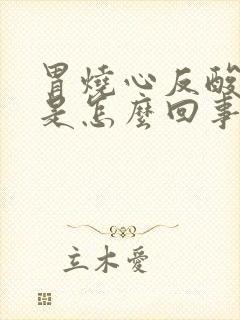 胃燒心反酸
是怎麼回事
立木愛